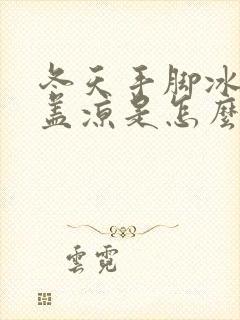 冬天手脚冰
盖凉是怎麼
雲霓